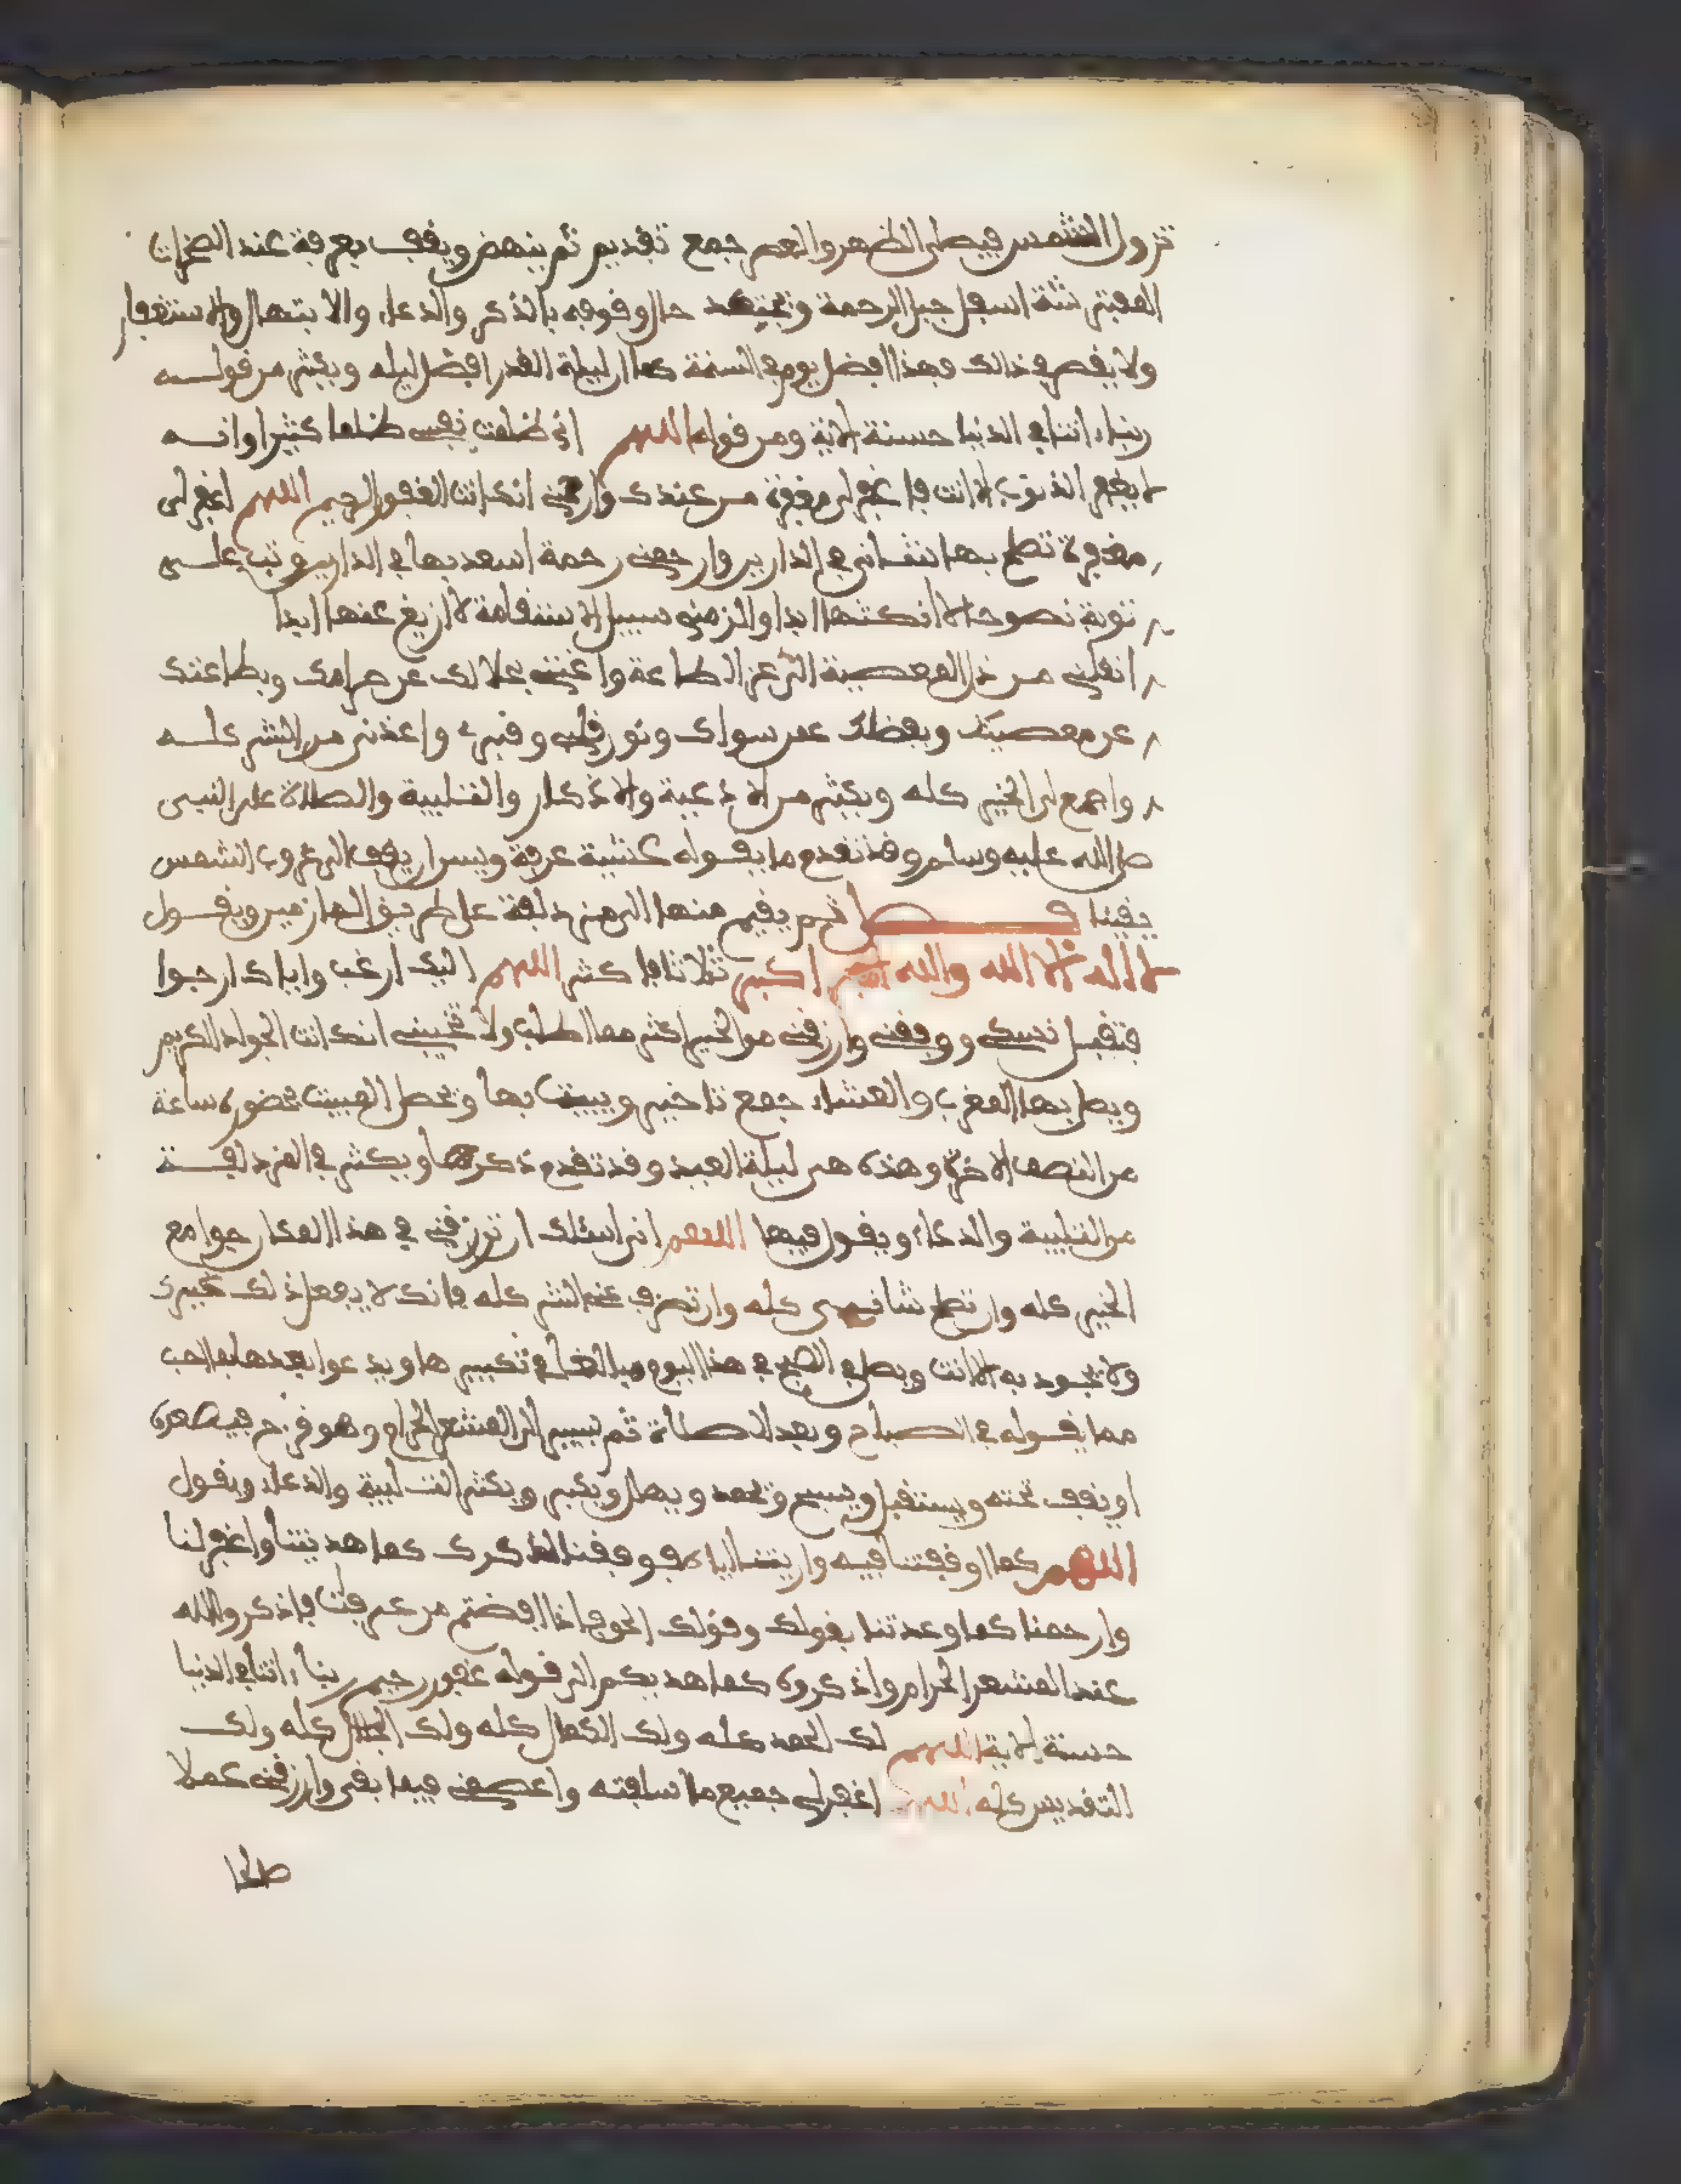 تزول الشمس فيصلى الظهر والعصر جمع تقديم ثم ينهض ويقف بعرفة عند الصخرات
المفترشة اسفل جبل الرحمة ويجتهد حال وقوفه بالذكر والدعاء والابتهال والاستغفار
ولا يقصر في ذالك فهذا افضل يوم في السنة كما ان ليلة القدر افضل ليله ويكثر من قوله
ربناء اتنا في الدنيا حسنة الاية ومن قوله اللهم اني ظلمت نفسي ظلما كثيرا وانه
لا يغفر الذنوب الا انت فاغفر لي مغفرة من عندك وارحمني انك انت الغفور الرحيم اللهم اغفر لي
مغفرة تصلح بها شاني في الدارين وارحمني رحمة اسعد بها في الدارين وتب علي
توبة نصوحا لا انكثها ابدا والزمني سبيل الاستقامة لا ازيغ عنها ابدا
انقلني من ذل المعصية الى عز الطاعة واغنني بحلالك عن حرامك وبطاعتك
عن معصيتك وبفضلك عمن سواك ونور قلبي وقبري واعذني من الشر كله
واجمع لي الخير كله ويكثر من الادعية والاذكار والتلبية والصلاة على النبي
صلى الله عليه وسلم وقد تقدم ما يقوله عشية عرفة ويسن ان يقف الى غروب الشمس
يقينا فصل ثم يفيض منها الى مزدلفة على طريق المازمين ويقول
لا اله الا الله والله اكبر ثلاثا فاكثر اللهم اليك ارغب واياك ارجوا
فتقبل نسكي ووفقني وارزقني من الخير اكثر مما اطلب ولا تخيبني انك انت الجواد الكريم
ويصلي بها المغرب والعشاء جمع تاخير ويبيت بها ويحصل المبيت بحضوره ساعة
من النصف الاخر وهذه هي ليلة العيد وقد تقدم ذكرها ويكثر في المزدلفة
من التلبية والدعاء ويقول فيها اللهم اني اسئلك ان ترزقني في هذا المكان جوامع
الخير كله وان تصلح شاني كله وان تصرف عني الشر كله فانك لا يفعل ذلك غيرك
ولا يجود به الا انت ويصلي الصبح في هذا اليوم مبالغا في تكبيرها ويدعوا بعدها بما احب
مما يقوله في الصباح وبعد الصلاة ثم يسير الى المشعر الحرام وهو قزح فيصعده
او يقف تحته ويستقبل ويسبح ويحمد ويهلل ويكبر ويكثر التلبية والدعاء ويقول
اللهم كما اوقفتنا فيه واريتنا اياه فوفقنا لذكرك كما هديتنا واغفر لنا
وارحمنا كما وعدتنا بقولك وقولك الحق فاذا افضتم من عرفات فاذكروا الله
عند المشعر الحرام واذكروه كما هديكم الى قوله غفور رحيم ربناء اتنا في الدنيا
حسنة الاية اللهم لك الحمد كله ولك الكمال كله ولك الجلال كله ولك
التقديس كله اللهم اغفر لي جميع ما اسلفته واعصمني فيما بقي وارزقني عملا
صالحا